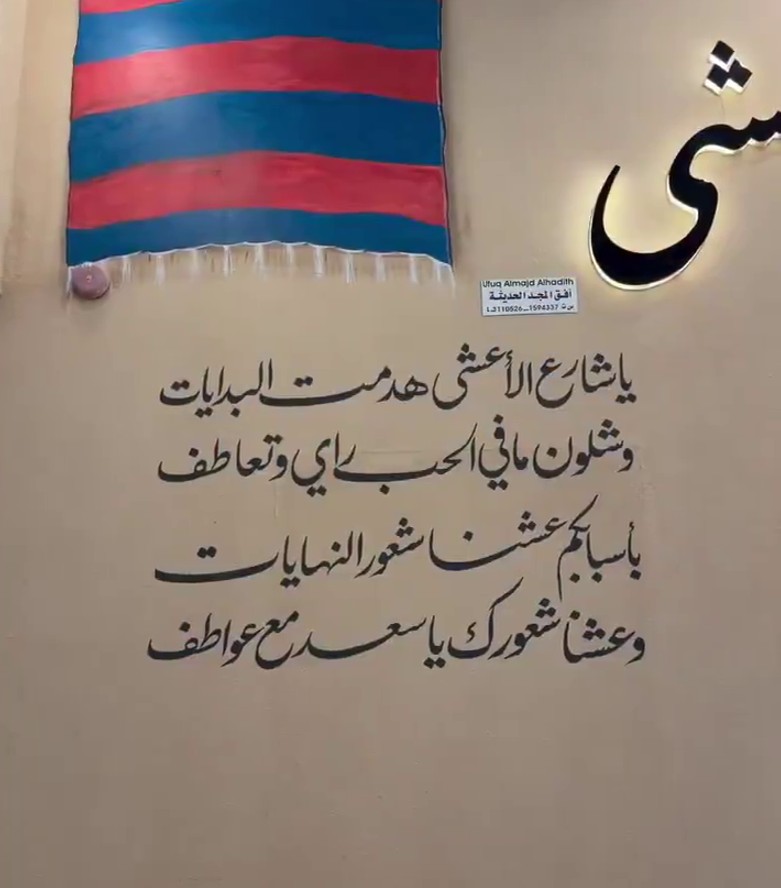 شى
Ufuq Almajd Alhadith
أفق المجد الحديثة
يا شارع الأعشى هدمت البدايات
وشلون ما في الحب راي وتعاطف
بأسبابكم عشنا شعور النهايات
وعشنا شعورك يا سعد مع عواطف